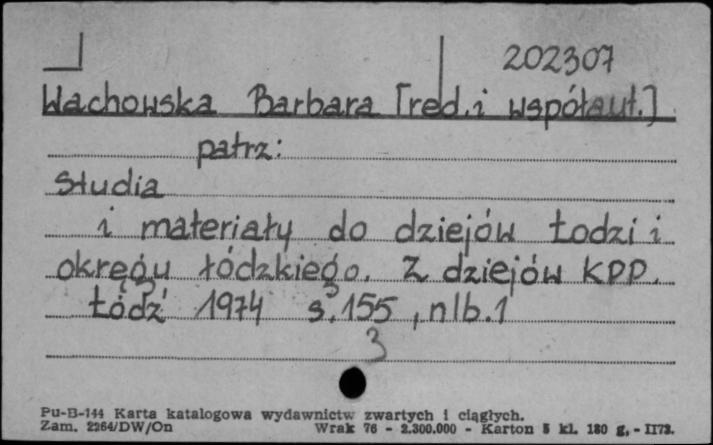 202307
Wachowska Barbara [red. i współaut.]
patrz:
Studia
i materiały do dziejów Łodzi i
okręgu łódzkiego. Z dziejów KPP.
Łódź 1974 s. 155, nlb. 1
3
Pu-B-144 Karta katalogowa wydawnictw zwartych i ciągłych.
Zam. 2264/DW/On Wrak 76 - 2.300.000 - Karton 5 kl. 180 g. - II73.